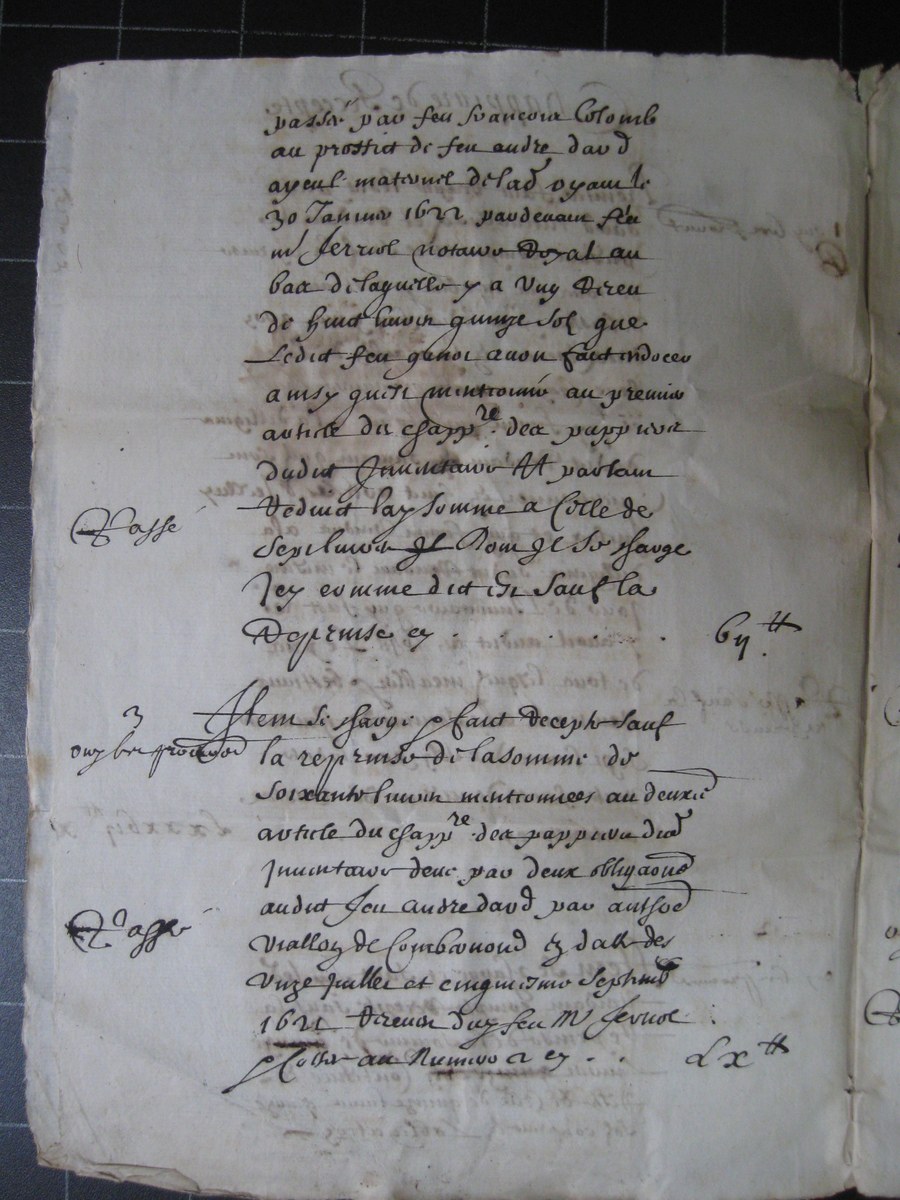 passée par feu françois Colomb
au proffict de feu andre david
ayeul maternel de lad oyant le
30 Janvier 1622 pardevant feu
mr ferriol notaire Royal au
bas de laquelle y a ung Receu
de huict livres quinze sol que
Ledict feu avoit faict endocer
ainsy quest mentionné au premier
article du chappre des pappiers
dudict Inventaire Et partant
Reduict lad somme a Celle de
Passé
sept livres Et Dont Il se charge
Icy comme dict Est sauf la
Reprinse cy . . . . . bij ₶
3
Item se charge et faict Recepte sauf
la reprinse de la somme de
soixante livres mentionnées au deuxe
article du chappre des pappiers dud
Inventaire deue par deux obligaons
audict feu andre david par
Passé
de en datte des
unze Juillet et cinquiesme septemb
1621 Receues par feu Mr ferriol
Cottée au Numero 2 cy . . Lx ₶